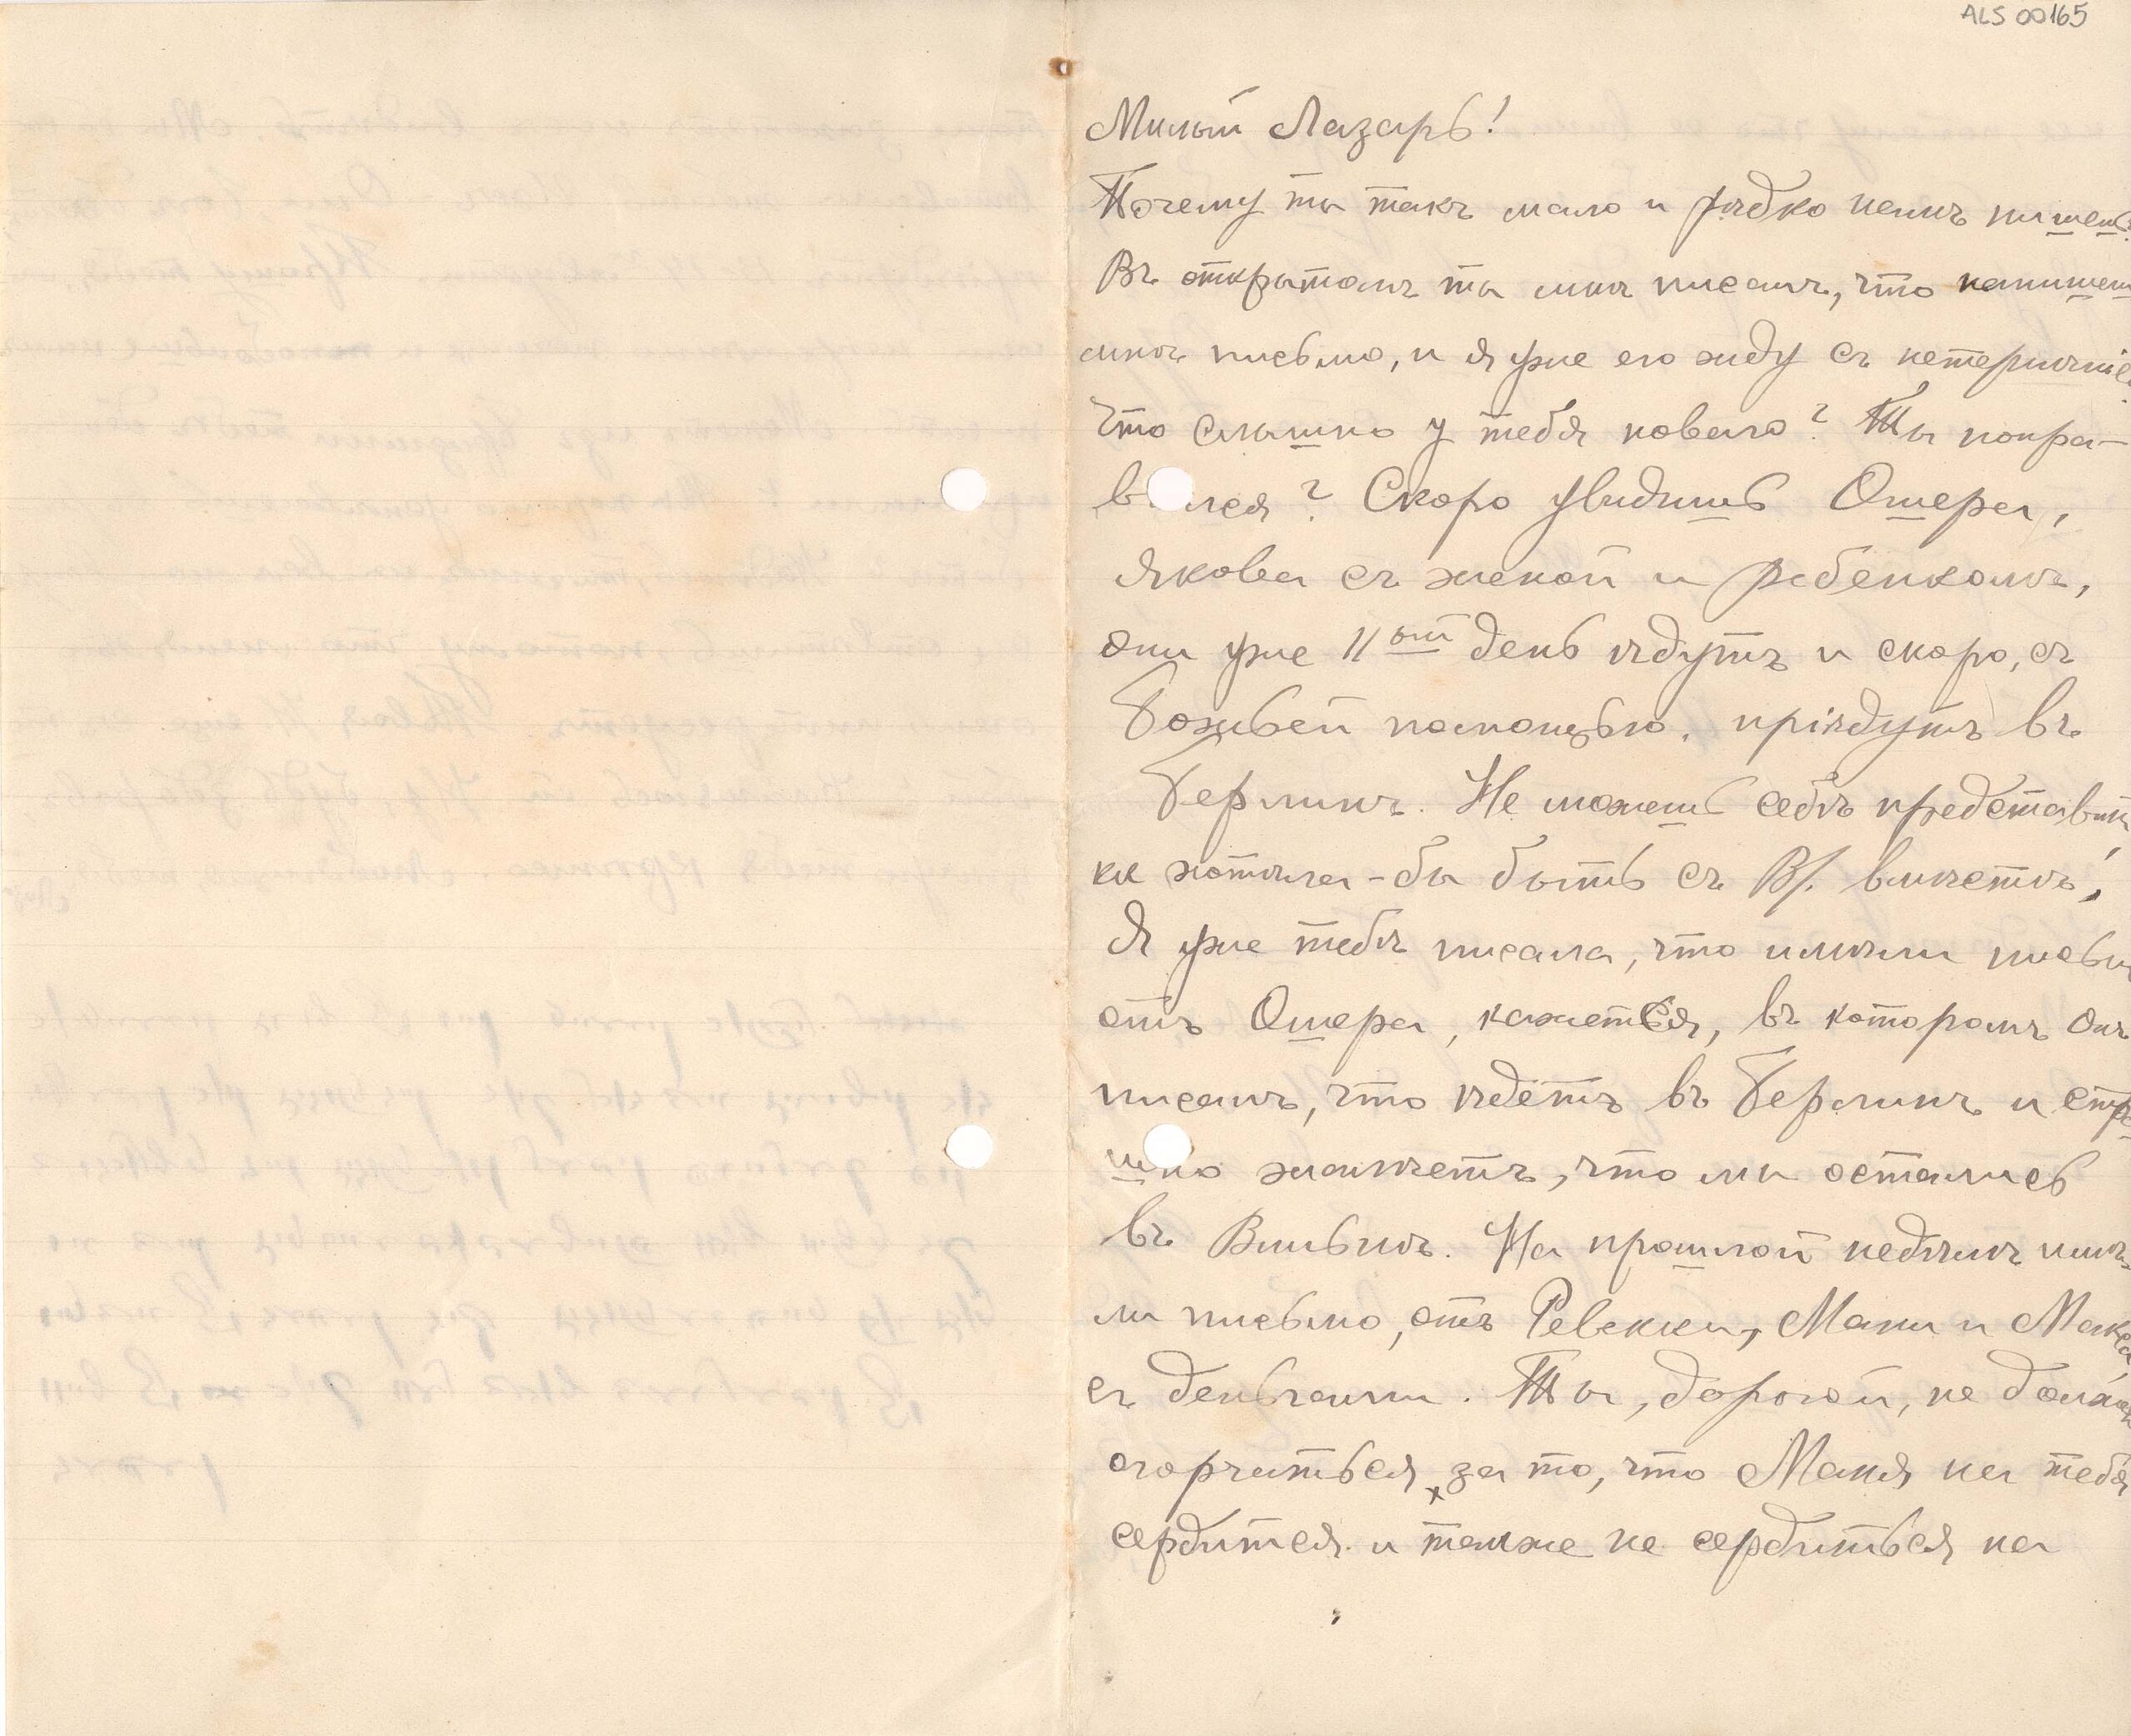 ALS 00165
Милый Лазарь!
Почему ты такъ мало и рѣдко намъ пишешь?
Въ открытомъ ты мнѣ писалъ, что напишешь
мнѣ письмо, и я уже его жду съ нетерпѣніем.
Что слышно у тебя новаго? Ты попра-
вился? Скоро увидишь Ошера,
Якова съ женой и ребенкомъ,
они уже 11ый день ѣдутъ и скоро, съ
Божьей помощью, пріѣдутъ въ
Берлинъ. Не можешь себѣ представить
как хотѣла-бы быть съ В/. вмѣстѣ!
Я уже тебѣ писала, что имѣли письмо
отъ Ошера, кажется, въ которомъ онъ
писалъ, что ѣдетъ въ Берлинъ и стра-
шно жалѣетъ, что мы остались
въ Вильнѣ. На прошлой недѣлѣ имѣ-
ли письмо, отъ Ревекки, Мани и Макса,
съ деньгами. Ты, дорогой, не должен
огорчаться, за то, что Маня на тебя
сердится и также не сердиться на